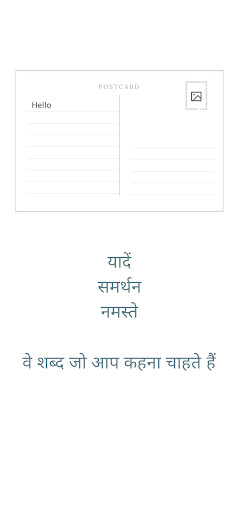 POSTCARD
Hello
यादें
समर्थन
नमस्ते
वे शब्द जो आप कहना चाहते हैं